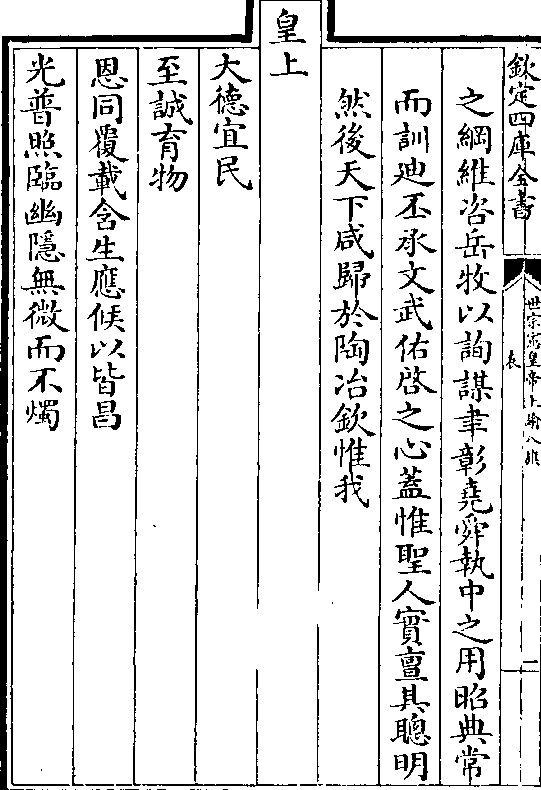 欽定四庫全書
世宗憲皇帝上諭八旗
表
二
之綱維咨岳牧以詢謀聿彰堯舜執中之用昭典常
而訓廸丕承文武佑啓之心蓋惟聖人實亶其聰明
然後天下咸歸於陶冶欽惟我
皇上
大德宜民
至誠育物
恩同覆載含生應候以皆昌
光普照臨幽隱無微而不燭